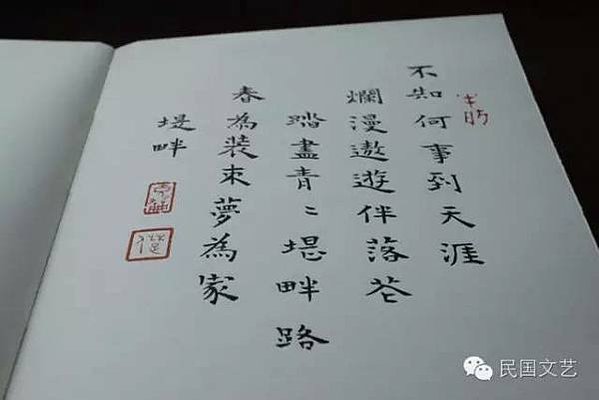 不知何事到天涯
爛漫遨遊伴落花
踏盡青〻堤畔路
春為裝束夢為家
堤畔
民国文艺